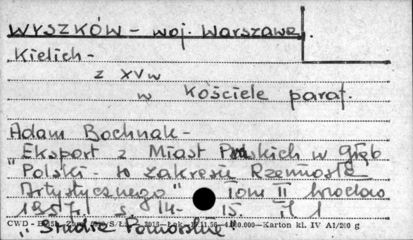 WYSZKÓW - woj. Warszawa.
Kielich -
z XV w
w Kościele paraf.
Adam Bochnak -
"Eksport z Miast Pruskich w głąb
Polski - w zakresie Rzemiosła
Artystycznego" tom II
s. 14 - 15. il 1
"Studia Pomorskie"
Karton kl. IV A1/200 g